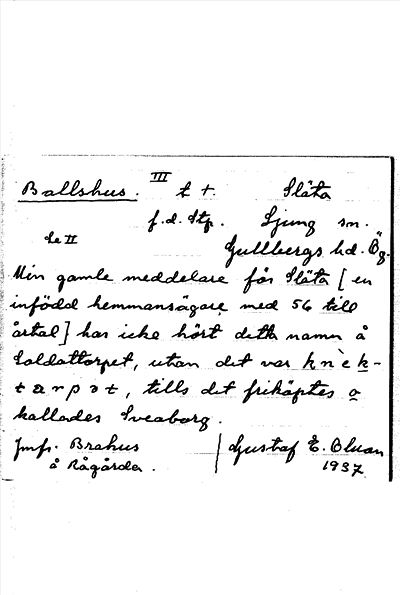 Ballshus. III t t. Släta
f.d. Stp. Ljung sn.
Se II Gullbergs hd. Ög.
Min gamle meddelare får Släta [en
infödd hemmansägare med 56 till
årtal] har icke hört detta namn å
Soldattorpet, utan det var knèk-
tarpət, tills det friköptes o
kallades Sveaborg.
Jmfr. Brahus Gustaf E. Olsson
å Rågårda. 1937